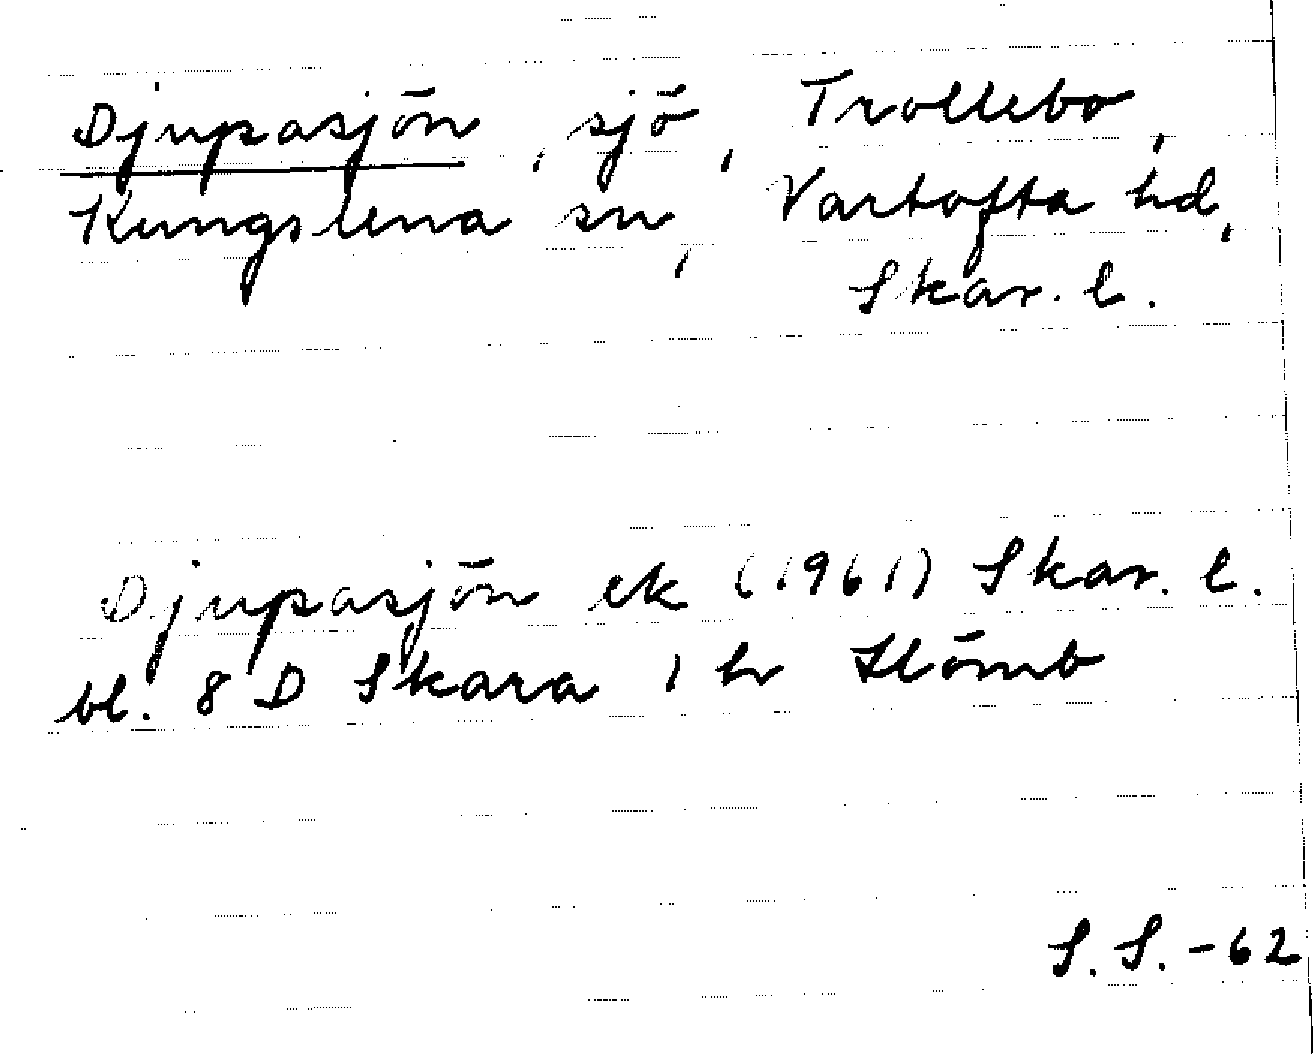 Djupasjön, sjö, Trollebo,
Kungslena sn, Vartofta hd,
Skar. l.
Djupasjön ek (1961) Skar. l.
bl. 8 D Skara, hr Slömb
S. S. -62